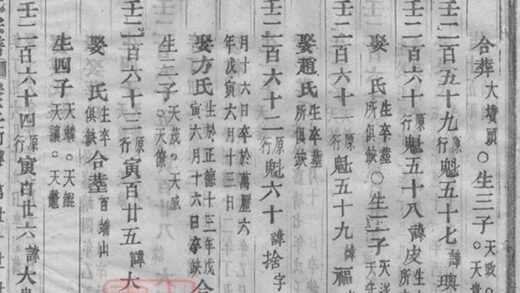 合葬大墳頭○生三子天政○天
壬二百五十九原行魁五十七諱璵
壬二百六十原行魁五十八諱皮生所
娶 氏生卒葬所俱缺○生二子天
壬二百六十一原行魁五十九諱福
娶趙氏生卒葬所俱缺
壬二百六十二原行魁六十諱捨字
月十六日卒於萬曆六年戊寅六月十三日
娶方氏生於正德十三年戊寅六月十六日卒缺合
生三子天茂○天感○天
壬二百六十三原行寅百廿五諱大
娶 氏生卒俱缺合葬百 山
生四子天 ○天 天讓○天
壬二百六十四原行寅百廿六諱大